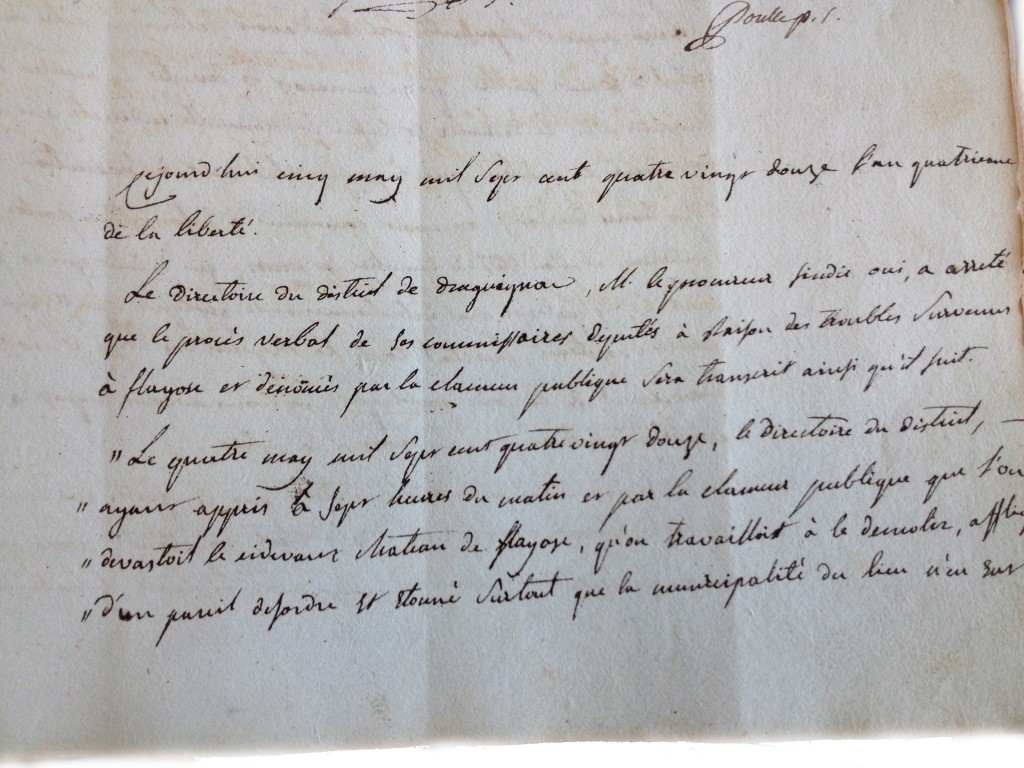 Poulle p. s.
Cejourd'hui cinq may mil sept cent quatre vingt douze l'an quatrieme
de la liberté.
Le directoire du district de draguignan, M. le procureur sindic oui, a arreté
que le procès verbal de ses commissaires deputés à raison des troubles survenus
à flayosc et dénoncés par la clameur publique sera transcrit ainsi qu'il suit.
" Le quatre may mil sept cent quatre vingt douze, le directoire du district, —
" ayant appris à sept heures du matin et par la clameur publique que l'on
" devastoit le cidevant chateau de flayosc, qu'on travailloit à le demolir, afflig
" d'un pareil desordre et etonné surtout que la municipalité du lieu n'en eut